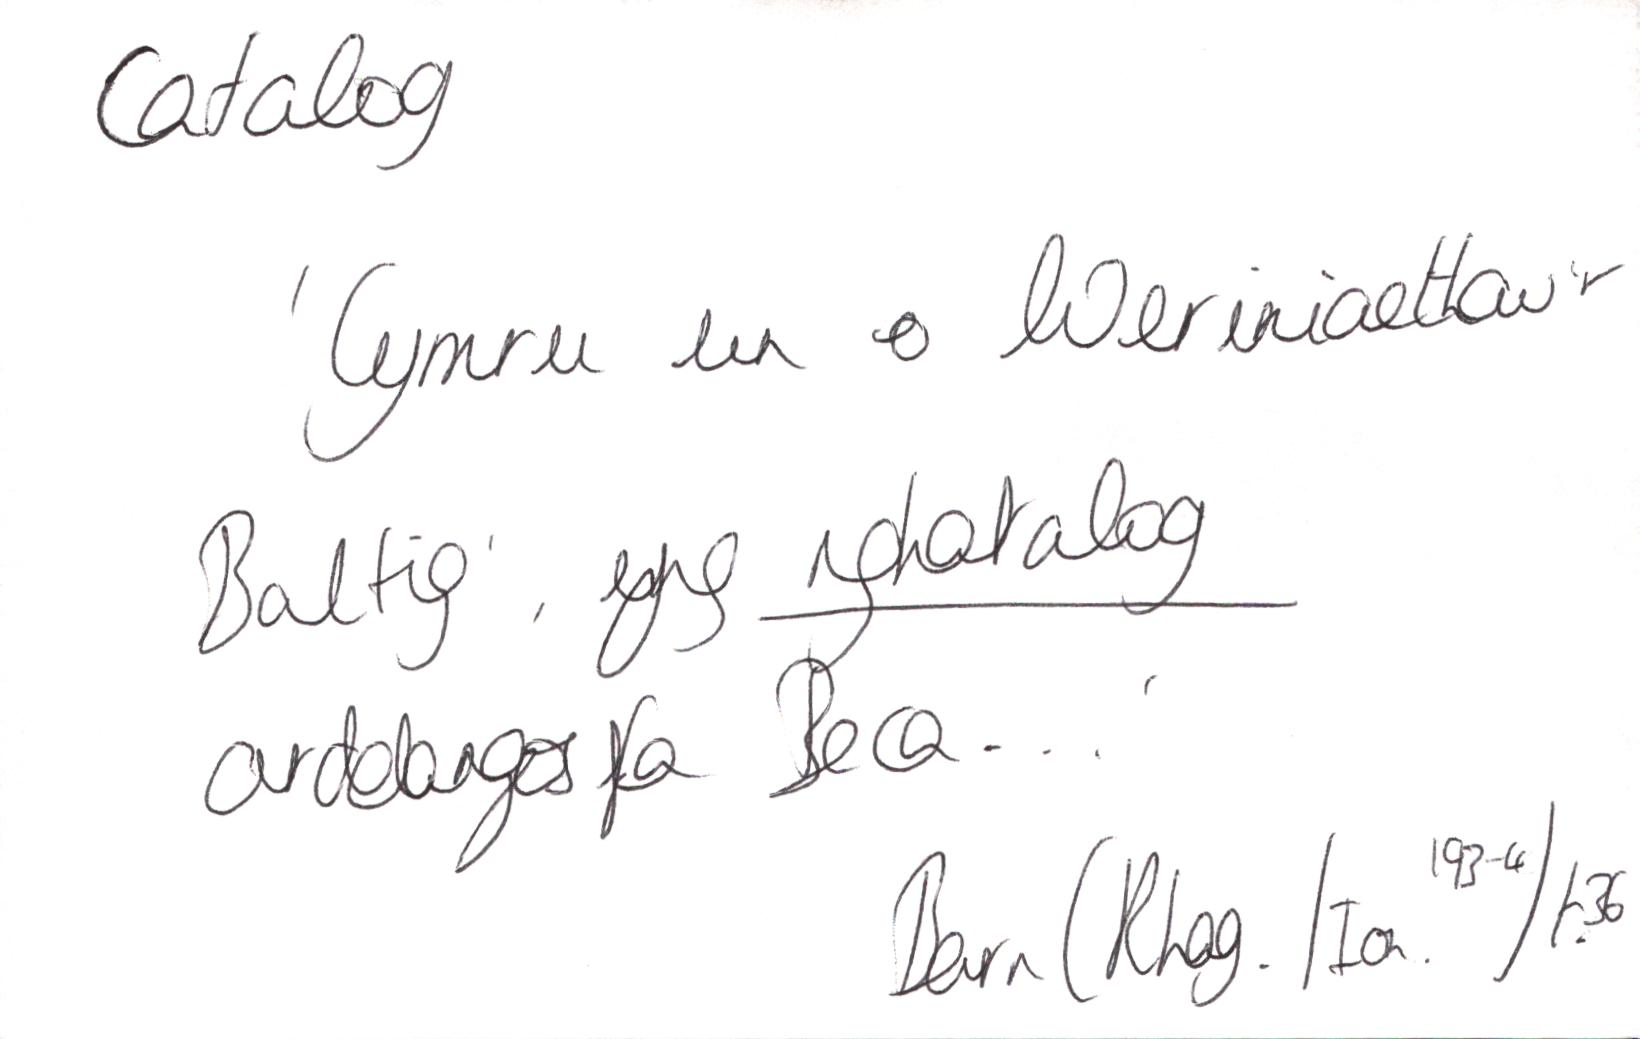 Catalog
'Cymru un o Weriniaethau'r
Baltig', yng nghatalog
arddangosfa Beca...'
Barn (Rhag. / Ion. 193-4) / t.36